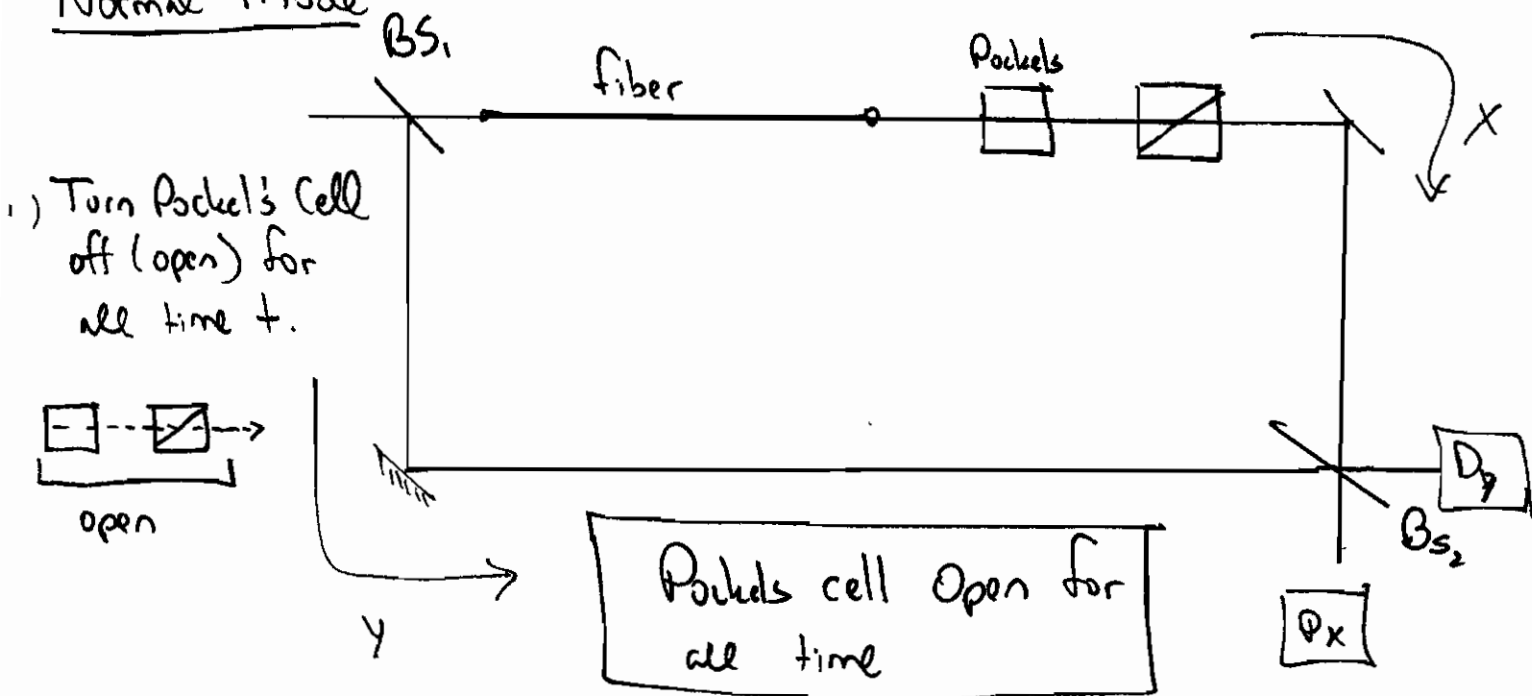 Normal Mode
BS₁
fiber
Pockels
X
1) Turn Pockel's Cell
off (open) for
all time t.
open
Y
Pockels cell Open for
all time
Dy
BS₂
Dx